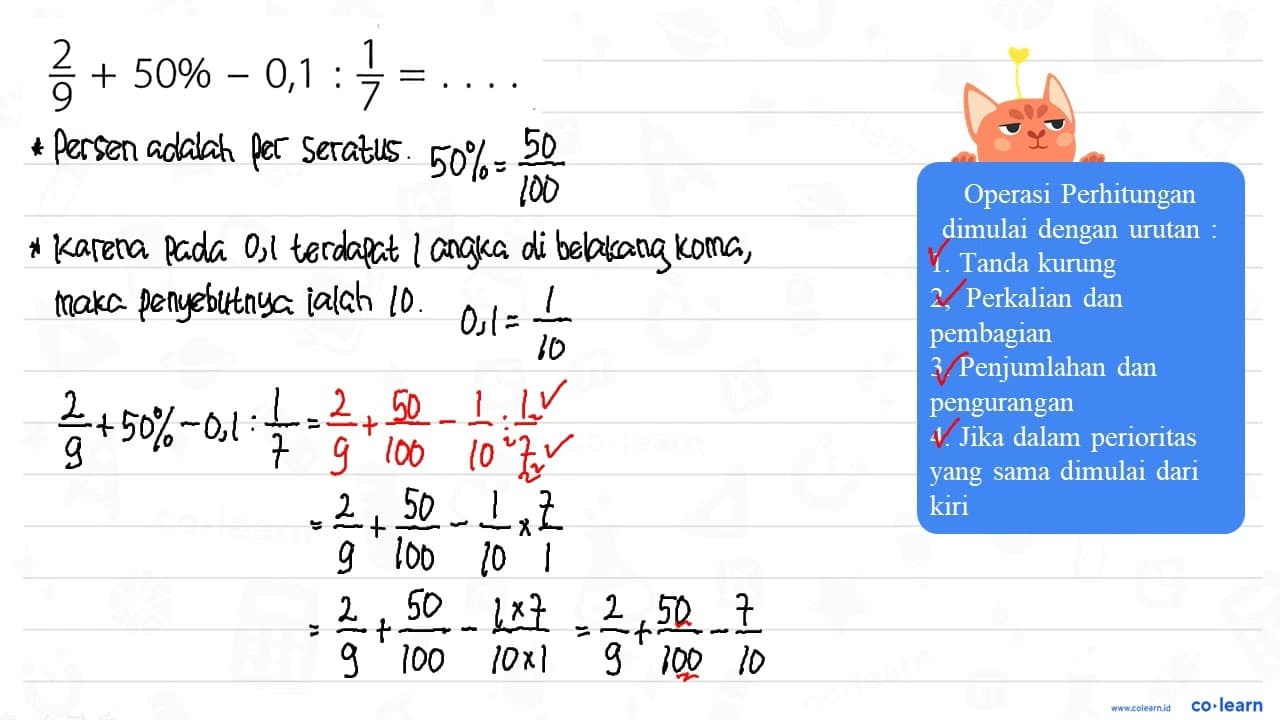 2/9 + 50% − 0,1 : 1/7 = . . . .
* Persen adalah per seratus. 50% = 50/100
* Karena pada 0,1 terdapat 1 angka di belakang koma,
maka penyebutnya ialah 10. 0,1 = 1/10
2/9 + 50% − 0,1 : 1/7 = 2/9 + 50/100 − 1/10 : 1/7
= 2/9 + 50/100 − 1/10 × 7/1
= 2/9 + 50/100 − 1×7/10×1 = 2/9 + 50/100 − 7/10
Operasi Perhitungan
dimulai dengan urutan :
1. Tanda kurung
2, Perkalian dan
pembagian
3. Penjumlahan dan
pengurangan
4. Jika dalam perioritas
yang sama dimulai dari
kiri
www.colearn.id co·learn